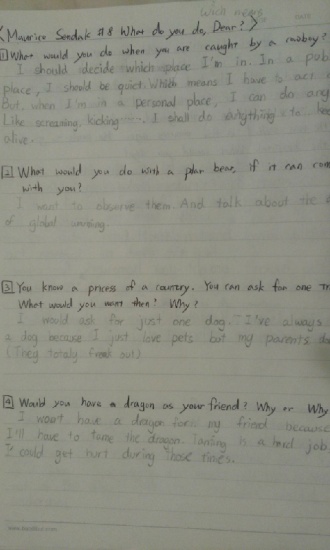 <Maurice Sendak #8 What do you do, Dear?>
1 What would you do when you are caught by a cowboy?
I should decide which place I'm in. In a pub
place, I should be quiet. Which means I have to act
But, when I'm in a personal place, I can do any
Like screaming, kicking ..... I shall do anything to
alive.
2 What would you do with a plar bear, if it can com
with you?
I want to observe them. And talk about the
of global
3 You know a princess of a country. You can ask for one
What would you want then? Why?
I would ask for just one dog. I've always
a dog because I just love pets but my parents do
(They totally freak out)
4 Would you have a dragon as your friend? Why or Why
I won't have a dragon for my friend because
I'll have to tame the dragon. Taming is a hard job
It could get hurt during those times.